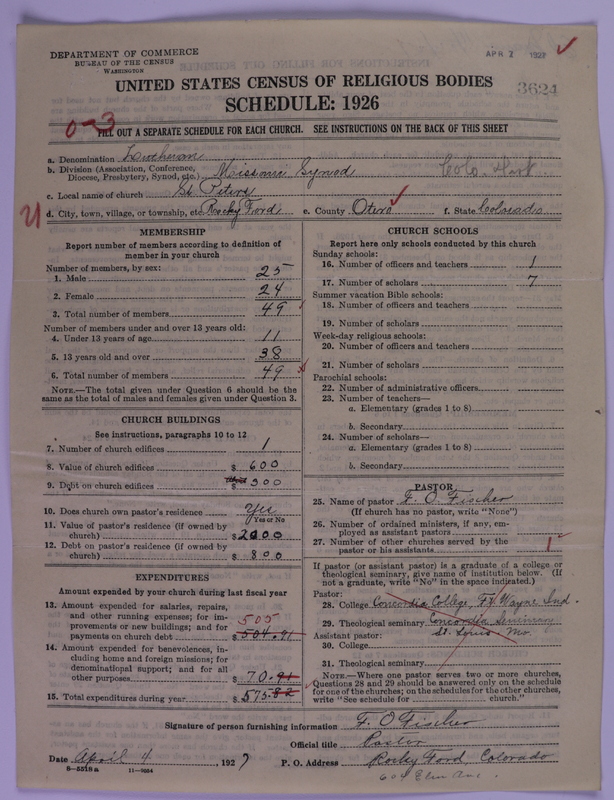 DEPARTMENT OF COMMERCE
BUREAU OF THE CENSUS
WASHINGTON
APR 7 1927
UNITED STATES CENSUS OF RELIGIOUS BODIES
SCHEDULE: 1926
3624
0-3
FILL OUT A SEPARATE SCHEDULE FOR EACH CHURCH. SEE INSTRUCTIONS ON THE BACK OF THIS SHEET
a. Denomination Lutheran
b. Division (Association, Conference, Diocese, Presbytery, Synod, etc.) Missouri Synod Colo. Dist
c. Local name of church St Peters
d. City, town, village, or township, etc Rocky Ford e. County Otero f. State Colorado
MEMBERSHIP
Report number of members according to definition of
member in your church
Number of members, by sex:
1. Male 25
2. Female 24
3. Total number of members 49
Number of members under and over 13 years old:
4. Under 13 years of age 11
5. 13 years old and over 38
6. Total number of members 49
NOTE.—The total given under Question 6 should be the
same as the total of males and females given under Question 3.
CHURCH BUILDINGS
See instructions, paragraphs 10 to 12
7. Number of church edifices 1
8. Value of church edifices $ 600
9. Debt on church edifices $ 300
10. Does church own pastor's residence? Yes
Yes or No
11. Value of pastor's residence (if owned by
church) $ 2000
12. Debt on pastor's residence (if owned by
church) $ 800
EXPENDITURES
Amount expended by your church during last fiscal year
13. Amount expended for salaries, repairs,
and other running expenses; for im-
provements or new buildings; and for
payments on church debt $ 504.91
505
14. Amount expended for benevolences, in-
cluding home and foreign missions; for
denominational support; and for all
other purposes $ 70.91
15. Total expenditures during year $ 575.82
CHURCH SCHOOLS
Report here only schools conducted by this church
Sunday schools:
16. Number of officers and teachers 1
17. Number of scholars 7
Summer vacation Bible schools:
18. Number of officers and teachers
19. Number of scholars
Week-day religious schools:
20. Number of officers and teachers
21. Number of scholars
Parochial schools:
22. Number of administrative officers
23. Number of teachers—
a. Elementary (grades 1 to 8)
b. Secondary
24. Number of scholars—
a. Elementary (grades 1 to 8)
b. Secondary
PASTOR
25. Name of pastor F. O. Fischer
(If church has no pastor, write "None")
26. Number of ordained ministers, if any, em-
ployed as assistant pastors
27. Number of other churches served by the
pastor or his assistants 1
If pastor (or assistant pastor) is a graduate of a college or
theological seminary, give name of institution below. (If
not a graduate, write "No" in the space indicated.)
Pastor:
28. College Concordia College, Ft. Wayne Ind.
29. Theological seminary Concordia Seminary
Assistant pastor: St. Louis Mo.
30. College
31. Theological seminary
NOTE.—Where one pastor serves two or more churches,
Questions 28 and 29 should be answered only on the schedule
for one of the churches; on the schedules for the other churches,
write "See schedule for church."
Signature of person furnishing information F. O Fischer
Official title Pastor
Date April 4 1927 P. O. Address Rocky Ford, Colorado
8-5518a 11-9054
604 Elm Ave.